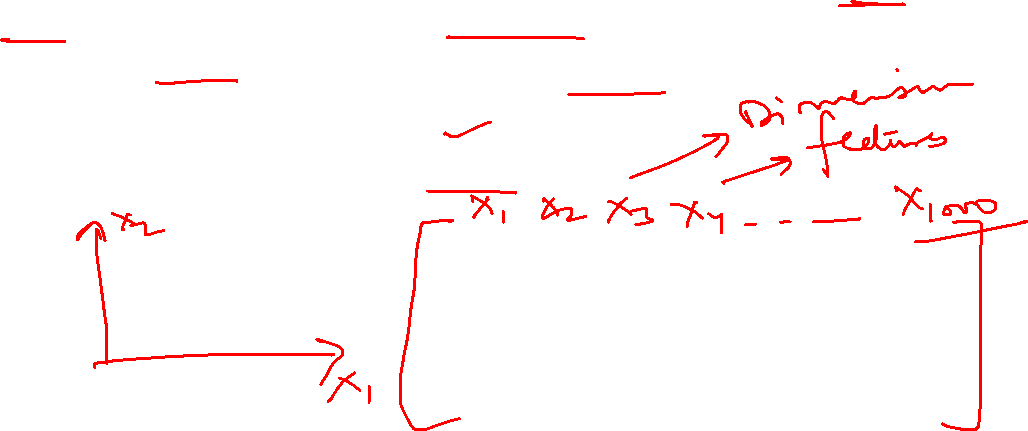 Dimension
features
x1 x2 x3 x4 - - - x1000
x2
x1